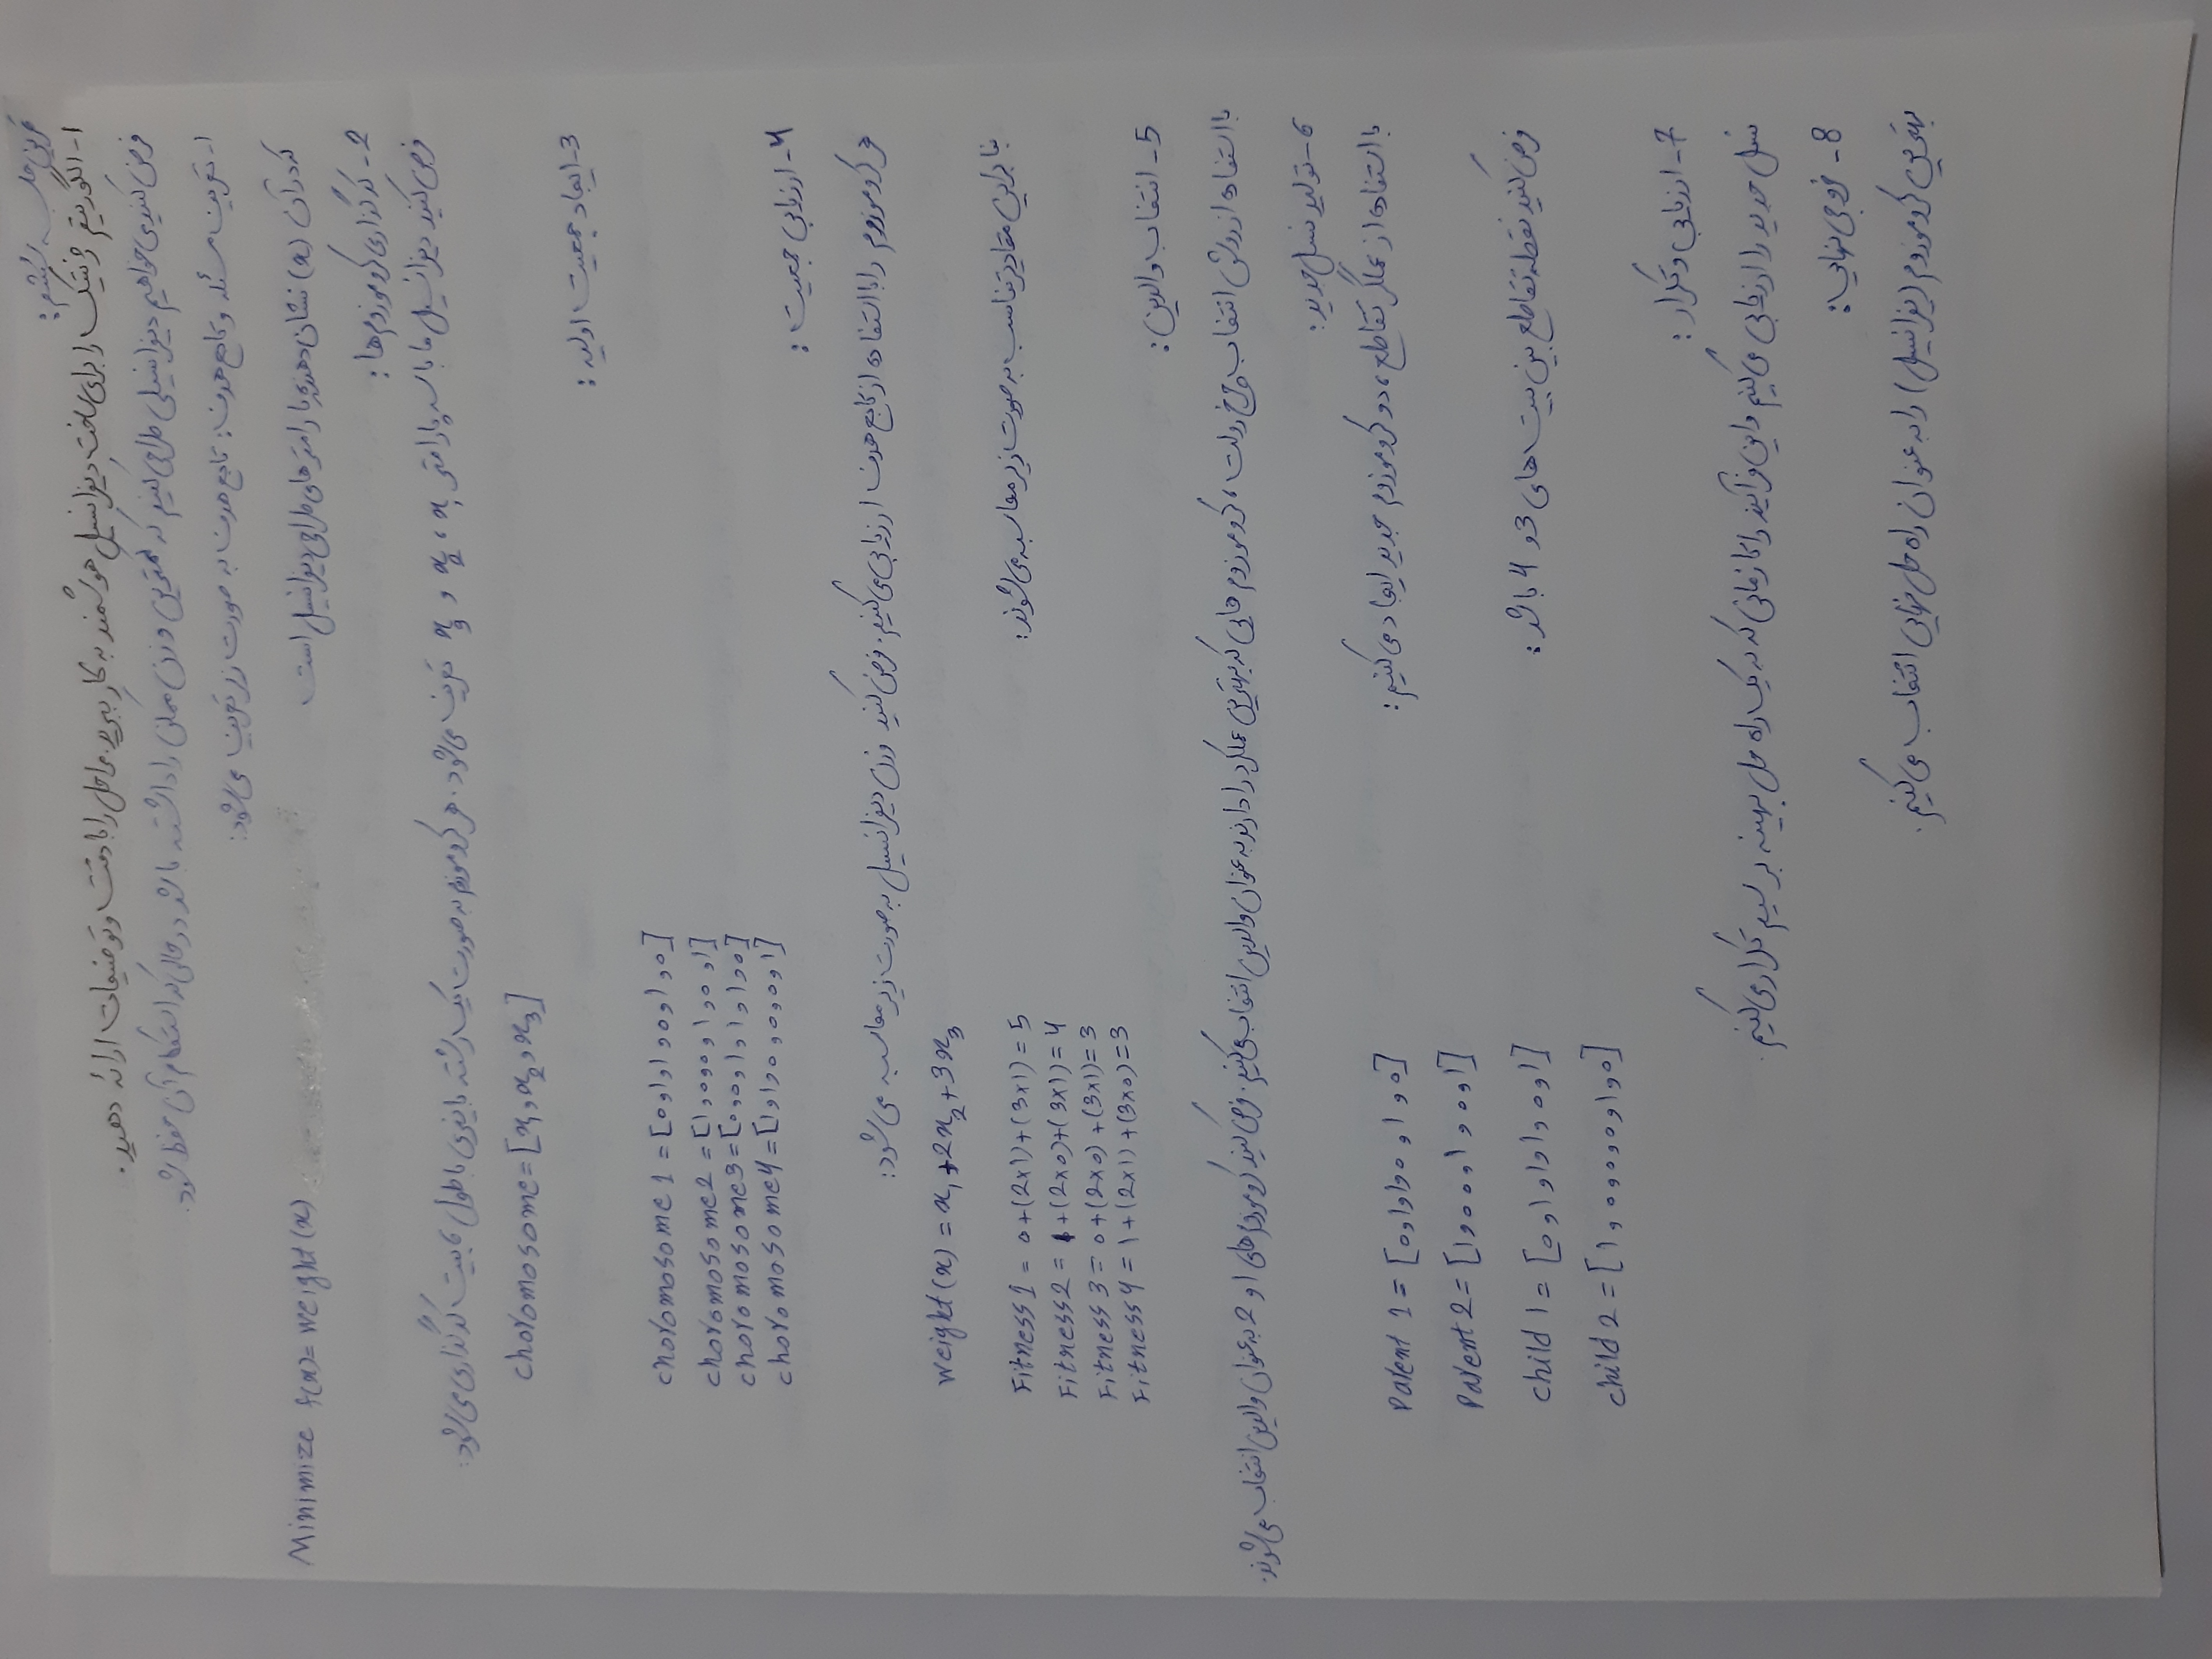 تمرین جلسه ششم:
۱- الگوریتم ژنتیک را برای ساخت دیفرانسیل هوشمند به کار ببرید. مراحل را با دقت و توضیحات ارائه دهید.
فرض کنید می خواهیم دیفرانسیلی طراحی کنیم که کمترین وزن ممکن را داشته باشد در حالی که استحکام آن حفظ شود.
۱- تعریف مسئله و تابع هدف: تابع هدف به صورت زیر تعریف می شود:
Minimize f(x)= weight(x)
که در آن (x) نشان دهنده پارامترهای طراحی دیفرانسیل است
2- کدگذاری کروموزوم ها:
فرض کنید دیفرانسیل ما با سه پارامتر x₁، x₂ و x₃ تعریف می شود. هر کروموزوم به صورت یک رشته باینری با طول ۶ بیت کدگذاری می شود:
choromosome=[x₁,x₂,x₃]
3- ایجاد جمعیت اولیه:
choromosome 1 = [0,1,1,0,1,0]
choromosome2 = [1,0,0,1,0,1]
choromosome3=[0,0,1,1,1,0]
choromosome4=[1,1,0,0,0,1]
4- ارزیابی جمعیت:
هر کروموزوم را با استفاده از تابع هدف ارزیابی می کنیم. فرض کنید وزن دیفرانسیل به صورت زیر محاسبه می شود:
weight(x) = x₁+2x₂+3x₃
بنابراین مقادیر تناسب به صورت زیر محاسبه می شوند:
Fitness1 = 0+(2x1)+(3x1)=5
Fitness2 = 1+(2x0)+(3x1)=4
Fitness3 = 0+(2x0)+(3x1)=3
Fitness4 = 1+(2x1)+(3x0)=3
5- انتخاب والدین:
با استفاده از روش انتخاب چرخ رولت، کروموزوم هایی که بهترین عملکرد را دارند به عنوان والدین انتخاب می کنیم. فرض کنید کروموزوم های 1 و 2 به عنوان والدین انتخاب می شوند.
6- تولید نسل جدید:
با استفاده از عملگر تقاطع، دو کروموزوم جدید ایجاد می کنیم:
Parent 1 = [0,1,1,0,1,0]
Parent 2= [1,0,0,1,0,1]
فرض کنید نقطه تقاطع بین بیت های 3 و 4 باشد:
child 1= [0,1,1,1,0,1]
child 2 = [1,0,0,0,1,0]
7- ارزیابی و تکرار:
نسل جدید را ارزیابی می کنیم و این فرآیند را تا زمانی که به یک راه حل بهینه برسیم تکرار می کنیم.
8- خروجی نهایی:
بهترین کروموزوم (یفرانسیل) را به عنوان راه حل نهایی انتخاب می کنیم.